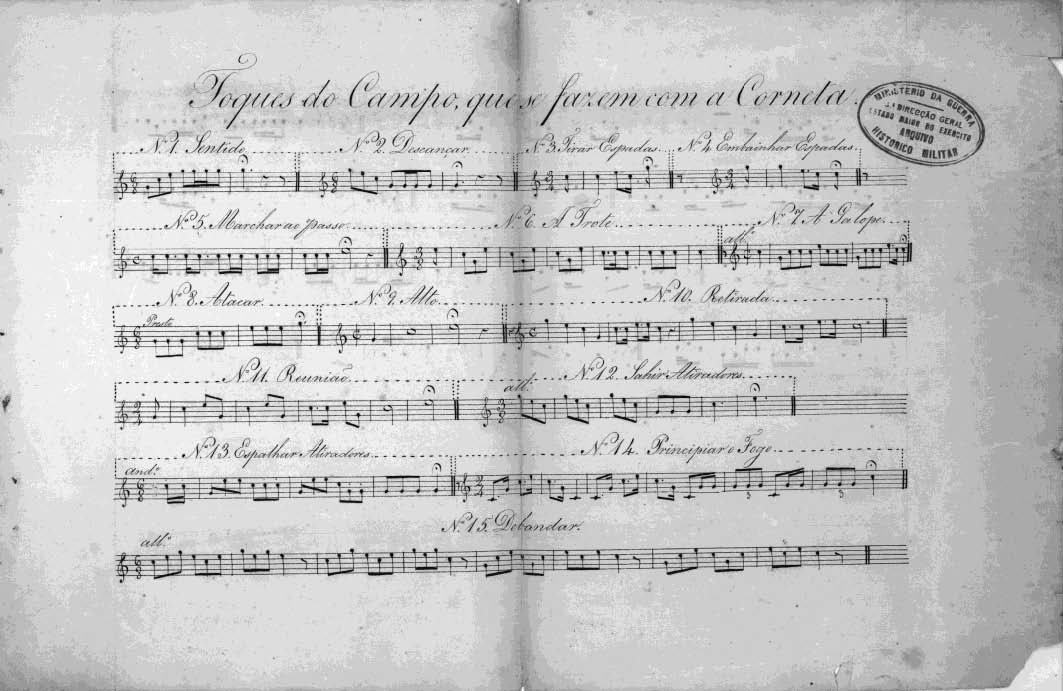 Toques do Campo, que se fazem com a Corneta.
MINISTERIO DA GUERRA
3.A DIRECÇÃO GERAL
ESTADO MAIOR DO EXERCITO
ARQUIVO
HISTORICO MILITAR
N.º 1. Sentido. N.º 2. Descançar. N.º 3. Tirar Espadas. N.º 4. Embainhar Espadas.
N.º 5. Marchar ao passo. N.º 6. A Trote. N.º 7. A Galope.
all.º
N.º 8. Atacar. N.º 9. Alto. N.º 10. Retirada.
Presto
N.º 11. Reunião. N.º 12. Sahir Atiradores.
all.º
N.º 13. Espalhar Atiradores. N.º 14. Principiar o Fogo.
and.e
3 3
N.º 15. Debandar.
all.º